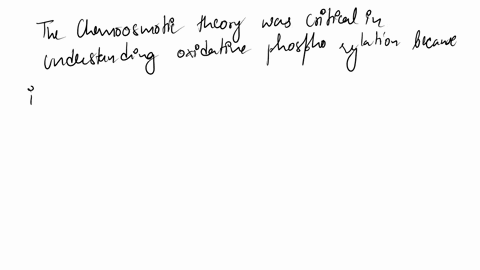 The Chemoosmotic theory was critical in
understanding oxidative phospho rylation because
i